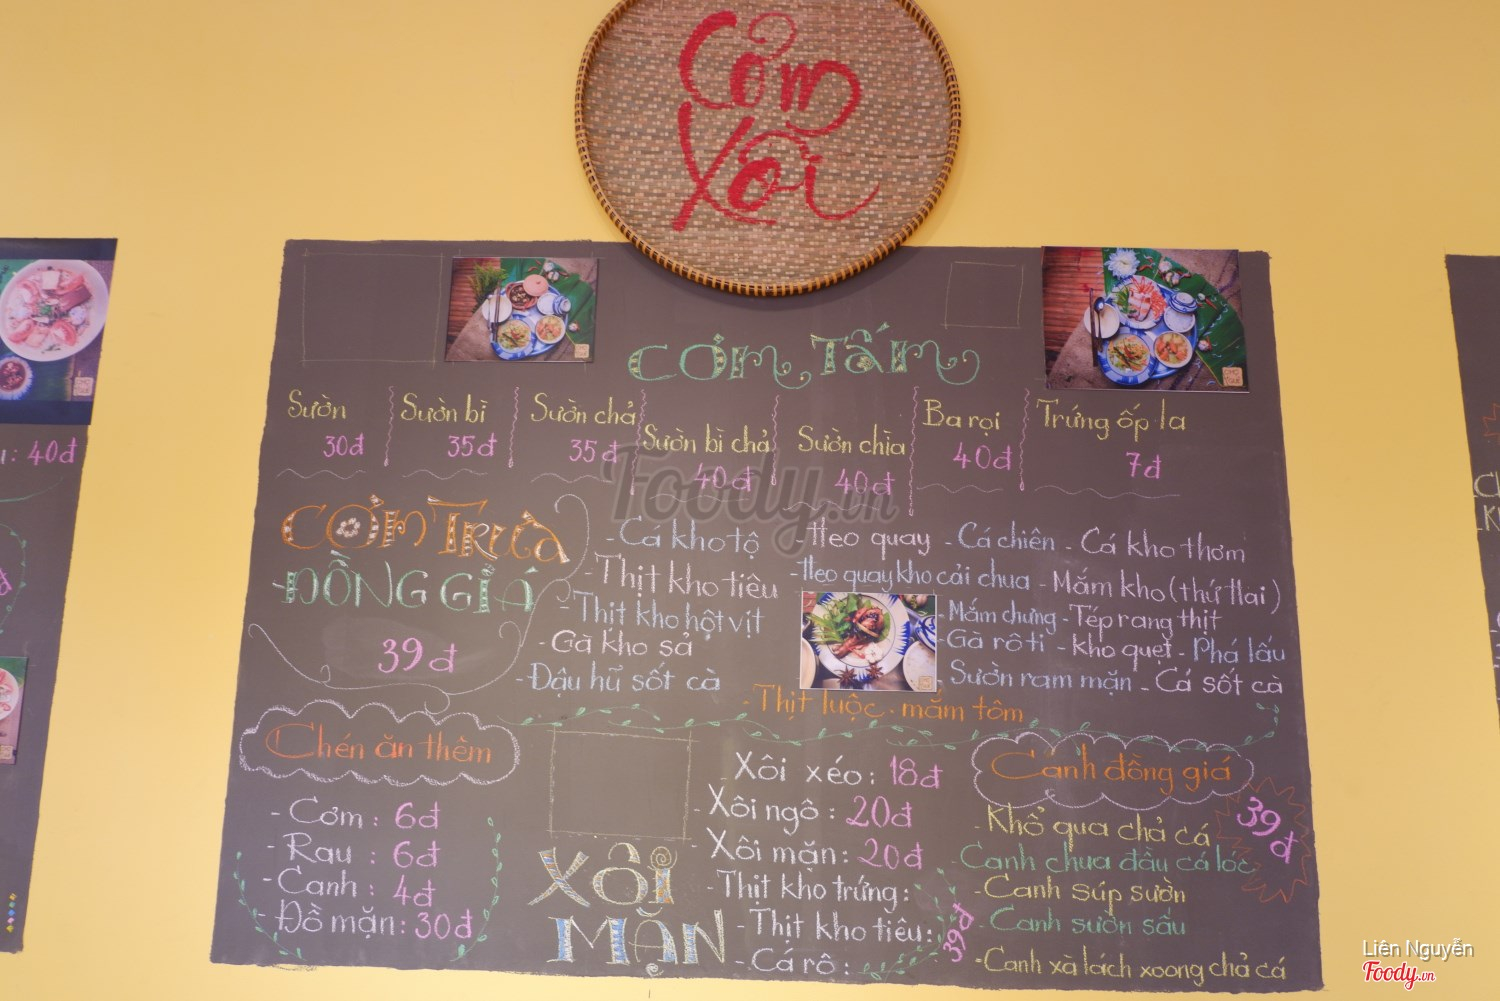 Cơm
Xôi
CƠM TẤM
Sườn
30đ
Sườn bì
35đ
Sườn chả
35đ
Sườn bì chả
40đ
Sườn chìa
40đ
Ba rọi
40đ
Trứng ốp la
7đ
CƠM TRƯA
ĐỒNG GIÁ
39đ
- Cá kho tộ
- Thịt kho tiêu
- Thịt kho hột vịt
- Gà kho sả
- Đậu hũ sốt cà
- Heo quay - Cá chiên - Cá kho thơm
- Heo quay kho cải chua - Mắm kho (thứ Hai)
- Mắm chưng - Tép rang thịt
- Gà rô ti - kho quẹt - Phá lấu
- Sườn ram mặn - Cá sốt cà
- Thịt luộc - mắm tôm
Chén ăn thêm
- Cơm : 6đ
- Rau : 6đ
- Canh : 4đ
- Đồ mặn: 30đ
XÔI
MẶN
- Xôi xéo: 18đ
- Xôi ngô: 20đ
- Xôi mặn: 20đ
- Thịt kho trứng:
- Thịt kho tiêu:
- Cá rô :
39đ
Canh đồng giá
39đ
- Khổ qua chả cá
- Canh chua đầu cá lóc
- Canh súp sườn
- Canh sườn sấu
- Canh xà lách xoong chả cá
: 40đ
Foody.vn
Liên Nguyễn
Foody.vn